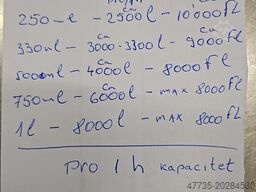 250ml - 2500l - 10'000 Fl
ca ca
330ml - 3000-3300l - 9000 fl
5000ml - 4000l - 8000 Fl
ca
750ml - 6000l - max 8000 Fl
1l - 8000l - max 8000 Fl
Pro 1 h kapacitet
47735-20284530